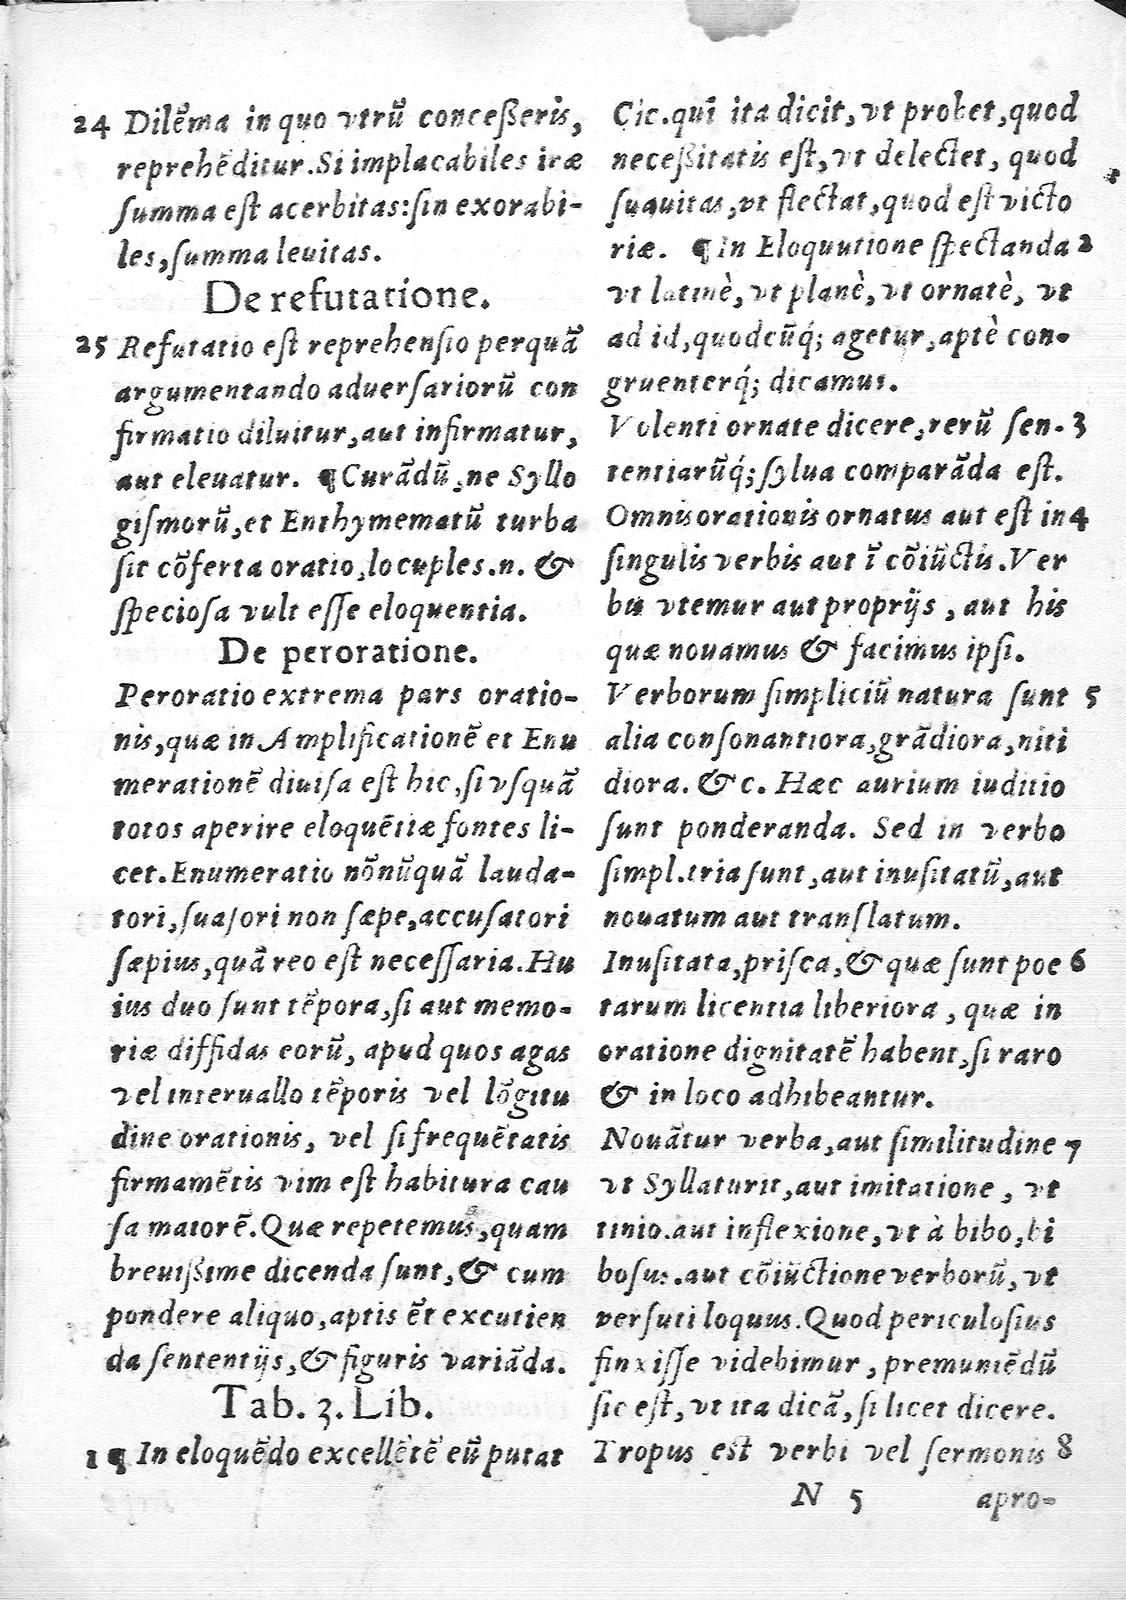 24 Dilẽma in quo vtrũ conceßeris,
reprehẽditur. Si implacabiles iræ
ſumma eſt acerbitas: ſin exorabi-
les, ſumma leuitas.
De refutatione.
25 Refutatio eſt reprehenſio per quã
argumentando aduerſariorũ con
firmatio diluitur, aut infirmatur,
aut eleuatur. ¶ Curãdũ, ne Syllo
giſmorũ, et Enthymematũ turba
ſit cõferta oratio, locuples. n. &
ſpecioſa vult eſſe eloquentia.
De peroratione.
Peroratio extrema pars oratio-
nis, quæ in Amplificationẽ et Enu
merationẽ diuiſa eſt hic, ſi vſquã
totos aperire eloquẽtiæ fontes li-
cet. Enumeratio nõnũquã lauda-
tori, ſuaſori non ſæpe, accuſatori
ſæpius, quã reo eſt neceſſaria. Hu
ius duo ſunt tẽpora, ſi aut memo-
riæ diffidas eorũ, apud quos agas
vel interuallo tẽporis vel lõgitu
dine orationis, vel ſi frequẽtatis
firmamẽtis vim eſt habitura cau
ſa maiorẽ. Quæ repetemus, quam
breuißime dicenda ſunt, & cum
pondere aliquo, aptis ẽt excutien
da ſententijs, & figuris variãda.
Tab. 3. Lib.
1 ¶ In eloquẽdo excellẽtẽ eũ putat
Cic. quĩ ita dicit, vt probet, quod
neceßitatis eſt, vt delectet, quod
ſuauitas, vt flectat, quod eſt victo
riæ. ¶ In Eloquutione ſpectanda 2
vt latinè, vt planè, vt ornatè, vt
ad id, quodcũq́; agetur, aptè con-
gruenterq́; dicamus.
Volenti ornate dicere, rerũ ſen- 3
tentiarũq́; ſylua comparãda eſt.
Omnis orationis ornatus aut eſt in 4
ſingulis verbis aut ĩ cõiũctis. Ver
bis vtemur aut proprijs, aut his
quæ nouamus & facimus ipſi.
Verborum ſimpliciũ natura ſunt 5
alia conſonantiora, grãdiora, niti
diora. &c. Hæc aurium iuditio
ſunt ponderanda. Sed in verbo
ſimpl. tria ſunt, aut inuſitatũ, aut
nouatum aut tranſlatum.
Inuſitata, priſca, & quæ ſunt poe 6
tarum licentia liberiora, quæ in
oratione dignitatẽ habent, ſi raro
& in loco adhibeantur.
Nouãtur verba, aut ſimilitudine 7
vt Syllaturit, aut imitatione, vt
tinio. aut inflexione, vt à bibo, bi
boſus. aut cõiũctione verborũ, vt
verſutiloquus. Quod periculoſius
finxiſſe videbimur, premuniẽdũ
ſic eſt, vt ita dicã, ſi licet dicere.
Tropus est verbi vel ſermonis 8
N 5 apro-